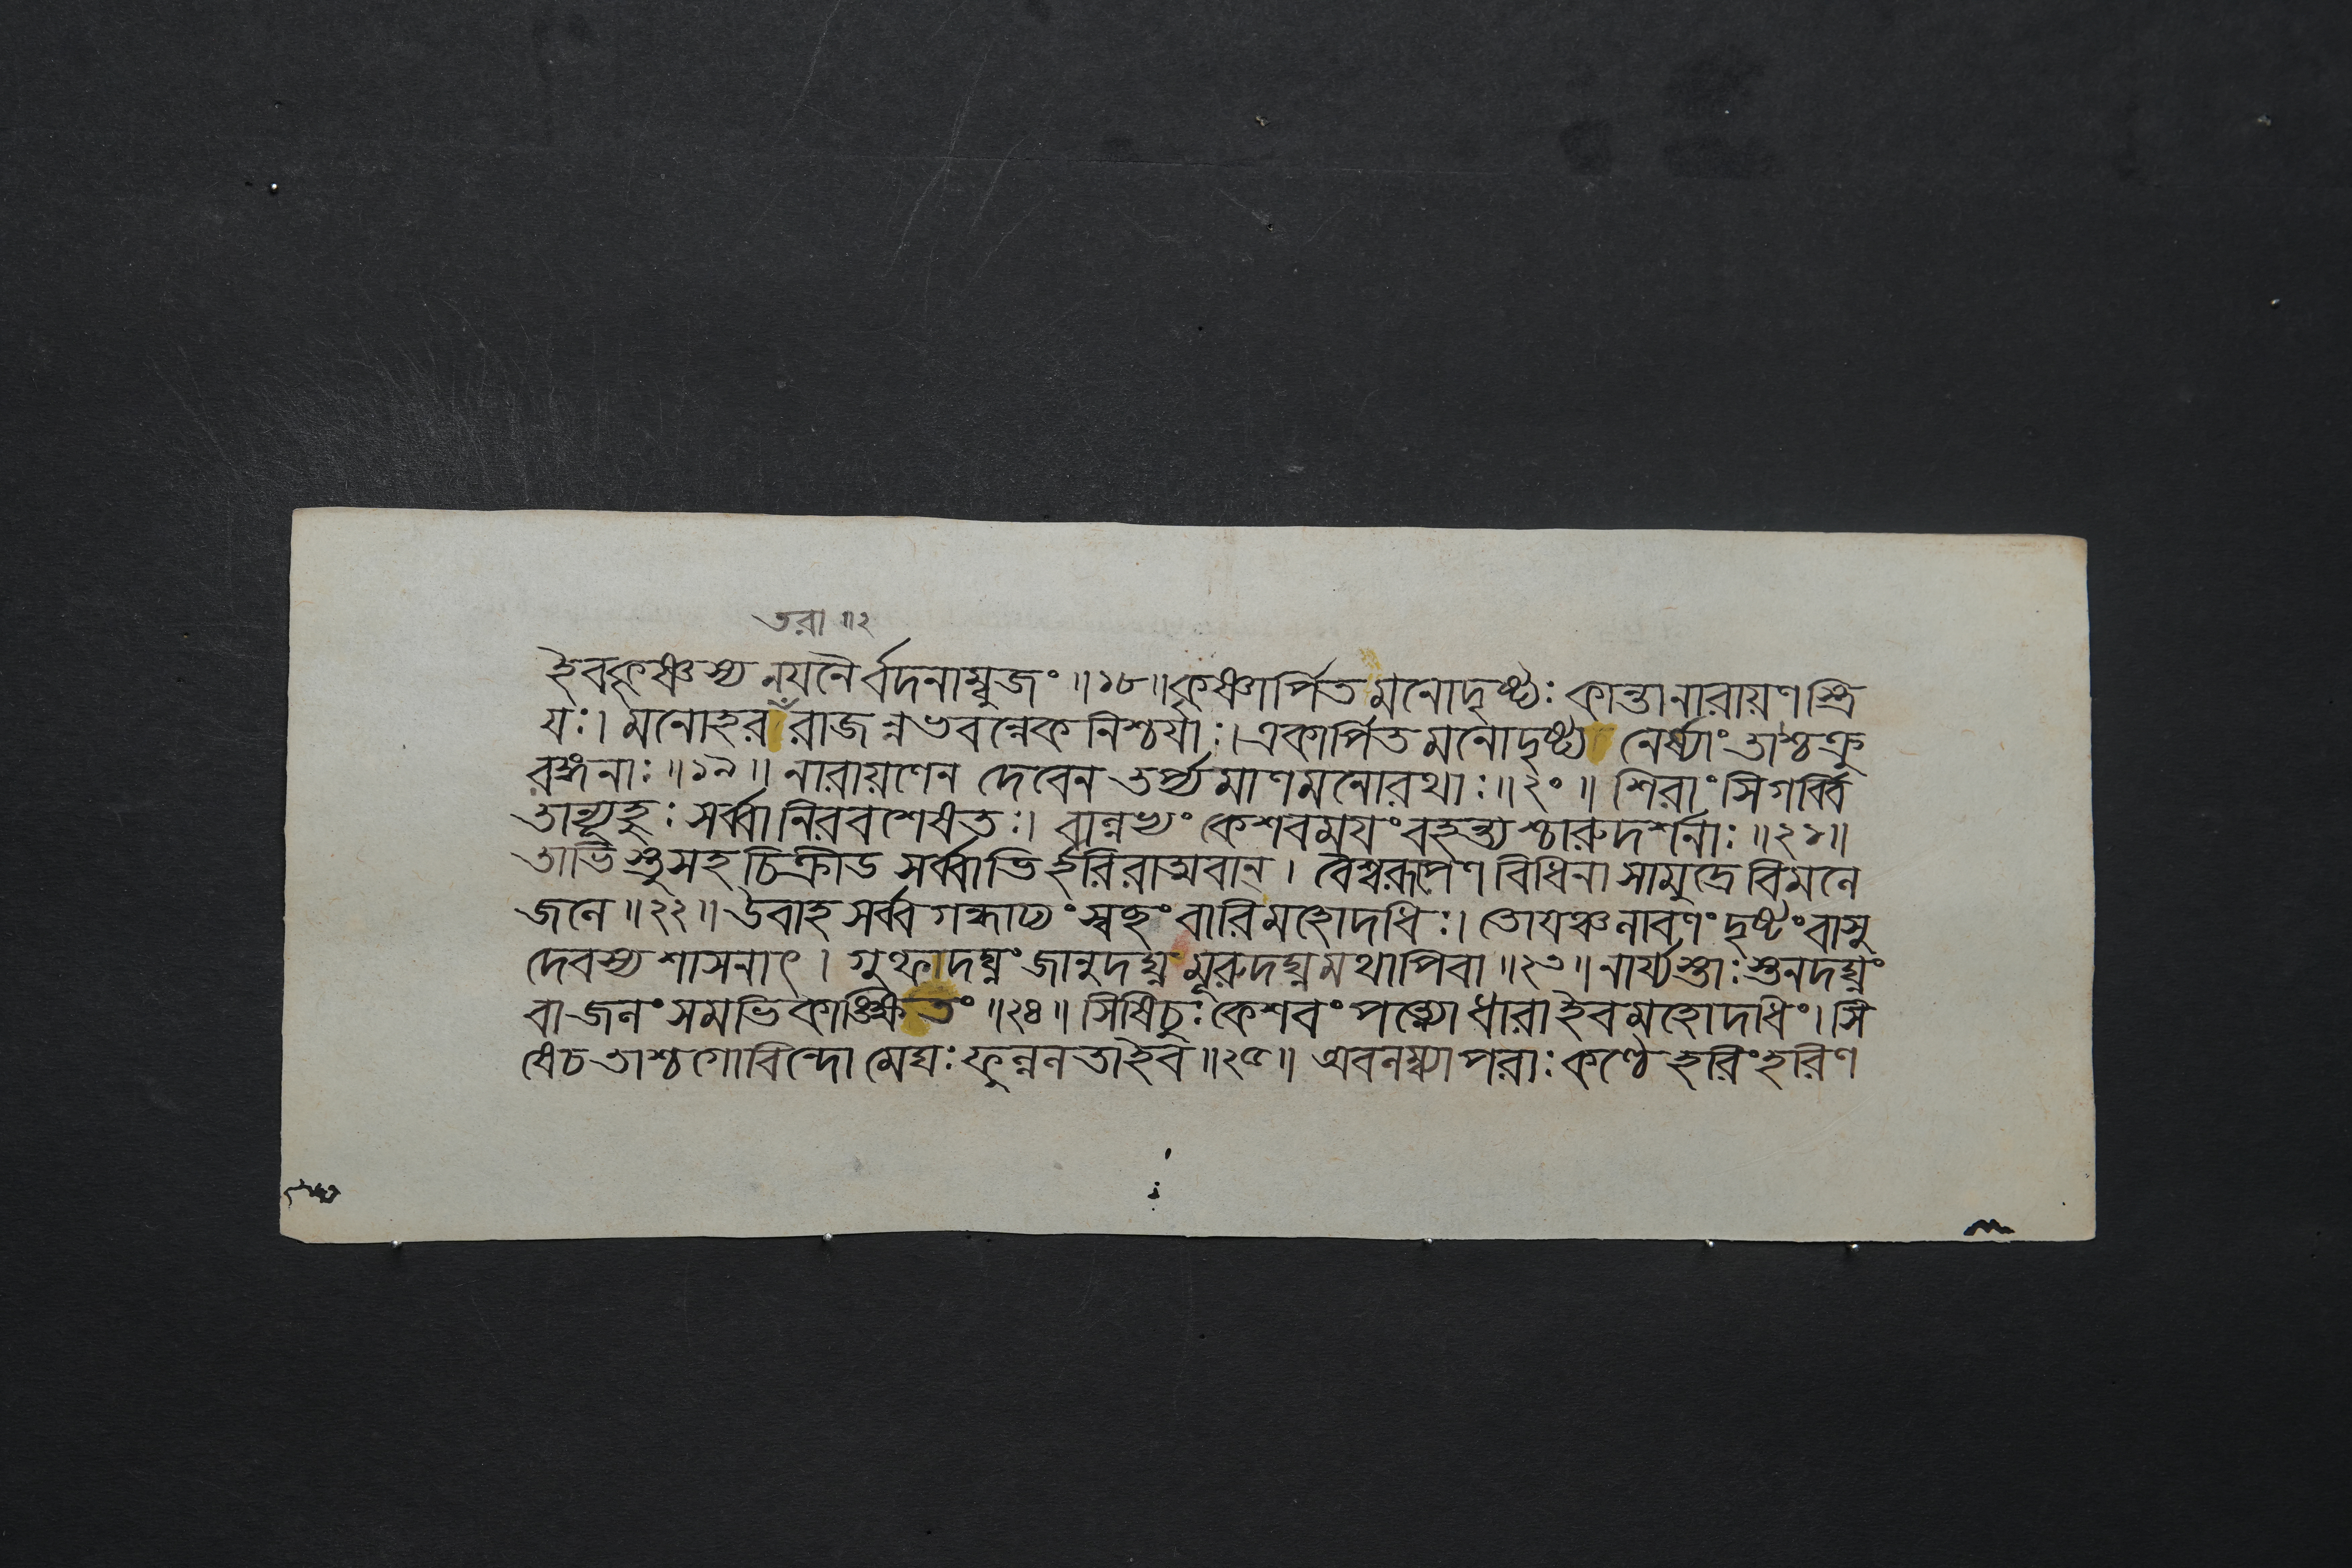 তরা ॥২
ইবকৃষ্ণস্য নয়নৈর্বদনাম্বুজং ॥১৮॥ কৃষ্ণার্পিতমনোদৃষ্ট্যঃ কান্তানারায়ণস্ত্রি
যঃ। মনোহর রাজন্নভবন্নেকনিশ্চর্যাঃ। একার্পিতমনোদৃষ্ট্য নের্ষ্যাং তাশ্চক্রু
রঙ্গনাঃ ॥১৯॥ নারায়ণেন দেবেন তর্প্যমাণমনোরথাঃ ॥২০॥ শিরাংসিগর্ব্বি
তান্যূহুঃ সর্ব্বানিরবশেষতঃ। বাল্লভ্যং কেশবময়ং বহন্ত্যশ্চারুদর্শনাঃ ॥২১॥
তাভিস্তুসহচিক্রীড সর্ব্বাভির্হরিরাত্মবান্। বৈশ্বরূপেণ বিধিনা সামুদ্রে বিমলে
জলে ॥২২॥ উবাহ সর্ব্বগন্ধাঢ্যং স্বচ্ছং বারিমহোদধিঃ। তোয়ঞ্চলাবণং দৃষ্টং বাসু
দেবস্য শাসনাৎ। গুল্ফদঘ্নং জানুদঘ্নমূরুদঘ্নমথাপিবা ॥২৩॥ নার্য্যস্তাঃ স্তনদঘ্নং
বা জলং সমভিকাঙ্ক্ষিতং ॥২৪॥ সিষিচুঃ কেশবং পত্ন্যো ধারাইবমহোদধিং। সি
ষেচ তাশ্চগোবিন্দো মেঘঃ ফুল্ললতাইব ॥২৫॥ অবলম্ব্যাপরাঃ কণ্ঠে হরিংহরিণ